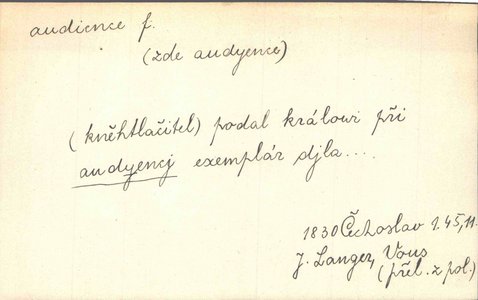 audience f.
(zde audyence)
(kněhtlačitel) podal králowi při
audyencj exemplár djla...
1830 Čechoslav 1.45,11.
J. Langer, Vous
(přel. z pol.)